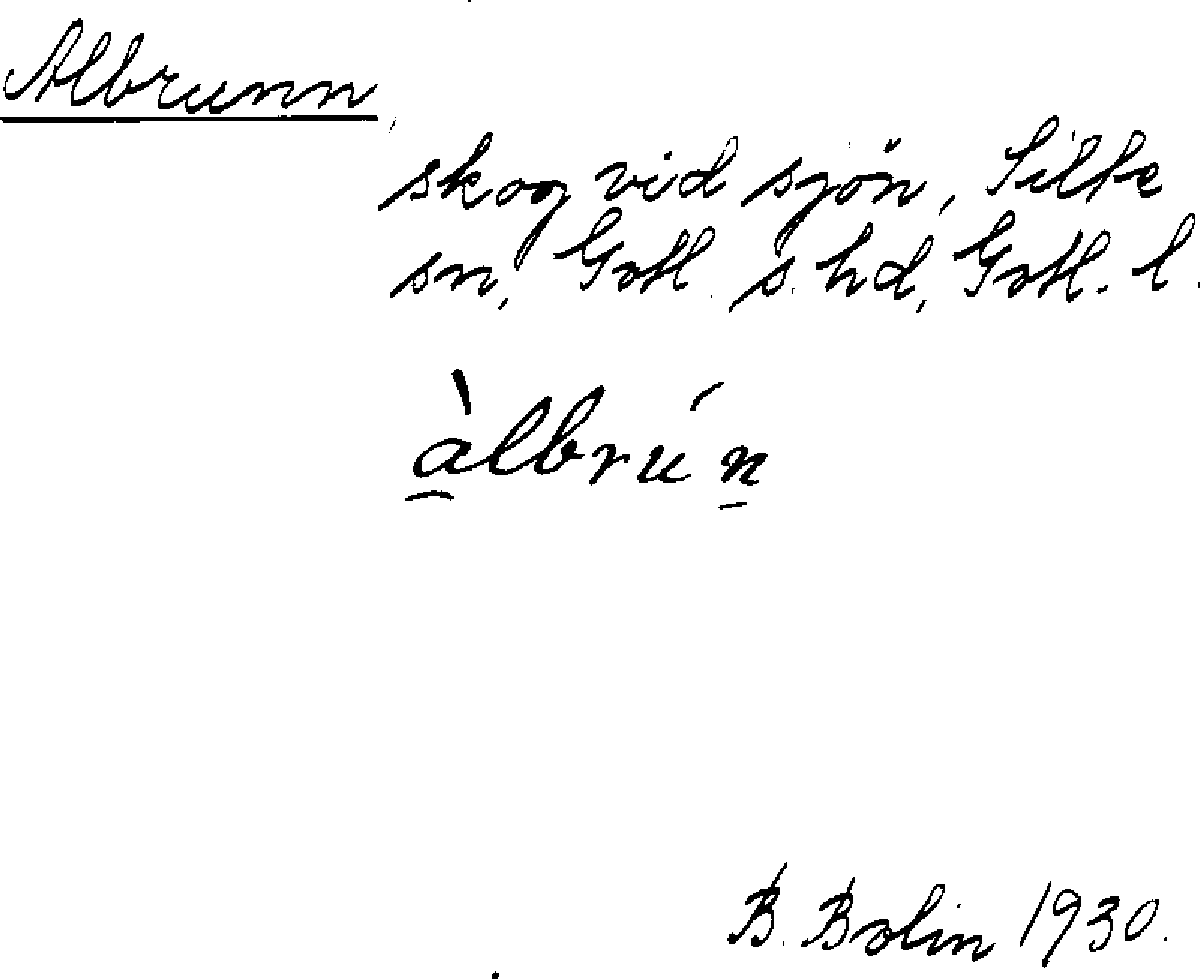 Albrunn,
skog vid sjön, Silte
sn, Gotl. s. hd, Gotl. l.
àlbrún
B. Bolin 1930.